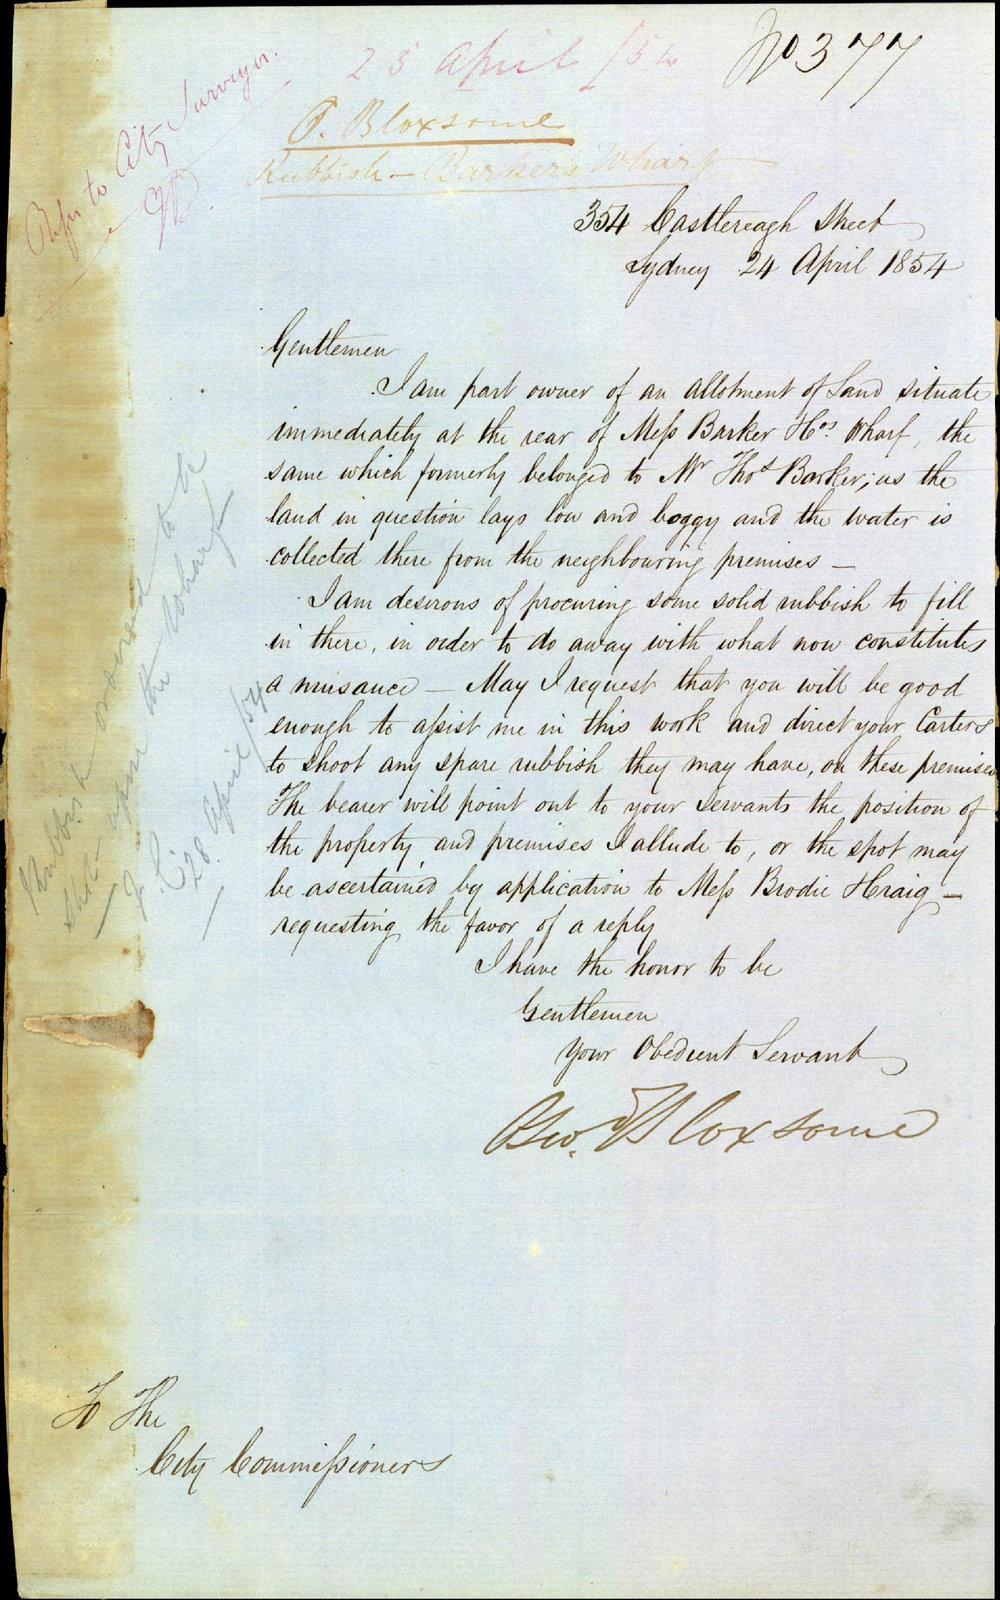 No 377
25 April /54
Refer to City Surveyor.
O. Bloxsome
Rubbish - Barker's Wharf
354 Castlereagh Street
Sydney 24 April 1854
Gentlemen
I am part owner of an allotment of Land situate
immediately at the rear of Mess Barker & Cos Wharf, the
same which formerly belonged to Mr Thos Barker; as the
land in question lays low and boggy and the water is
collected there from the neighbouring premises -
I am desirous of procuring some solid rubbish to fill
in there, in order to do away with what now constitutes
a nuisance - May I request that you will be good
enough to assist me in this work and direct your Carters
to shoot any spare rubbish they may have, on these premises
The bearer will point out to your servants the position of
the property and premises I allude to, or the spot may
be ascertained by application to Mess Brodie & Craig -
requesting the favor of a reply
I have the honor to be
Gentlemen
Your Obedient Servant
Bloxsome
Rubbish ordered to be
shot upon the Wharf
28 April /54
To The
City Commissioners